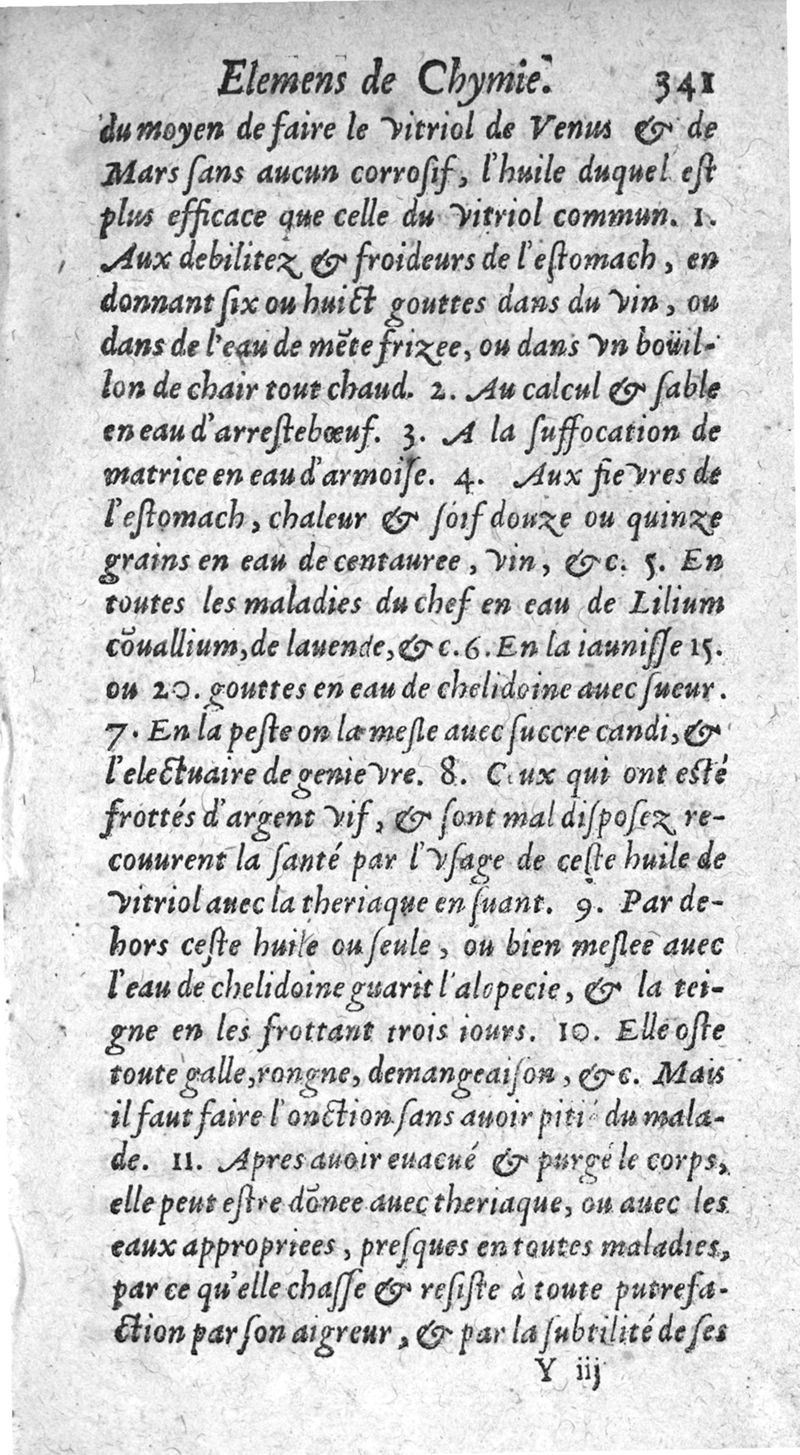 Elemens de Chymie. 341
du moyen de faire le vitriol de Venus & de
Mars ſans aucun corroſif, l'huile duquel eſt
plus efficace que celle du vitriol commun. 1.
Aux debilitez & froideurs de l'eſtomach, en
donnant ſix ou huict gouttes dans du vin, ou
dans de l'eau de mēte frizee, ou dans vn boüil-
lon de chair tout chaud. 2. Au calcul & ſable
en eau d'arreſtebœuf. 3. A la ſuffocation de
matrice en eau d'armoiſe. 4. Aux fievres de
l'eſtomach, chaleur & ſoif douze ou quinze
grains en eau de centauree, vin, &c. 5. En
toutes les maladies du chef en eau de Lilium
cōuallium, de lauende, &c. 6. En la iauniſſe 15.
ou 20. gouttes en eau de chelidoine avec ſueur.
7. En la peſte on la meſle auec ſuccre candi, &
l'electuaire de genievre. 8. Ceux qui ont eſté
frottés d'argent vif, & ſont mal diſpoſez re-
couurent la ſanté par l'vſage de ceſte huile de
vitriol auec la theriaque en ſuant. 9. Par de-
hors ceſte huile ou ſeule, ou bien meſlee auec
l'eau de chelidoine guarit l'alopecie, & la tei-
gne en les frottant trois iours. 10. Elle oſte
toute galle, rongne, demangeaiſon, &c. Mais
il faut faire l'onction ſans auoir pitié du mala-
de. 11. Apres auoir euacué & purgé le corps,
elle peut eſtre dōnee auec theriaque, ou auec les
eaux appropriees, preſques en toutes maladies,
par ce qu'elle chaſſe & reſiſte à toute putrefa-
ction par ſon aigreur, & par la ſubtilité de ſes
Y iij